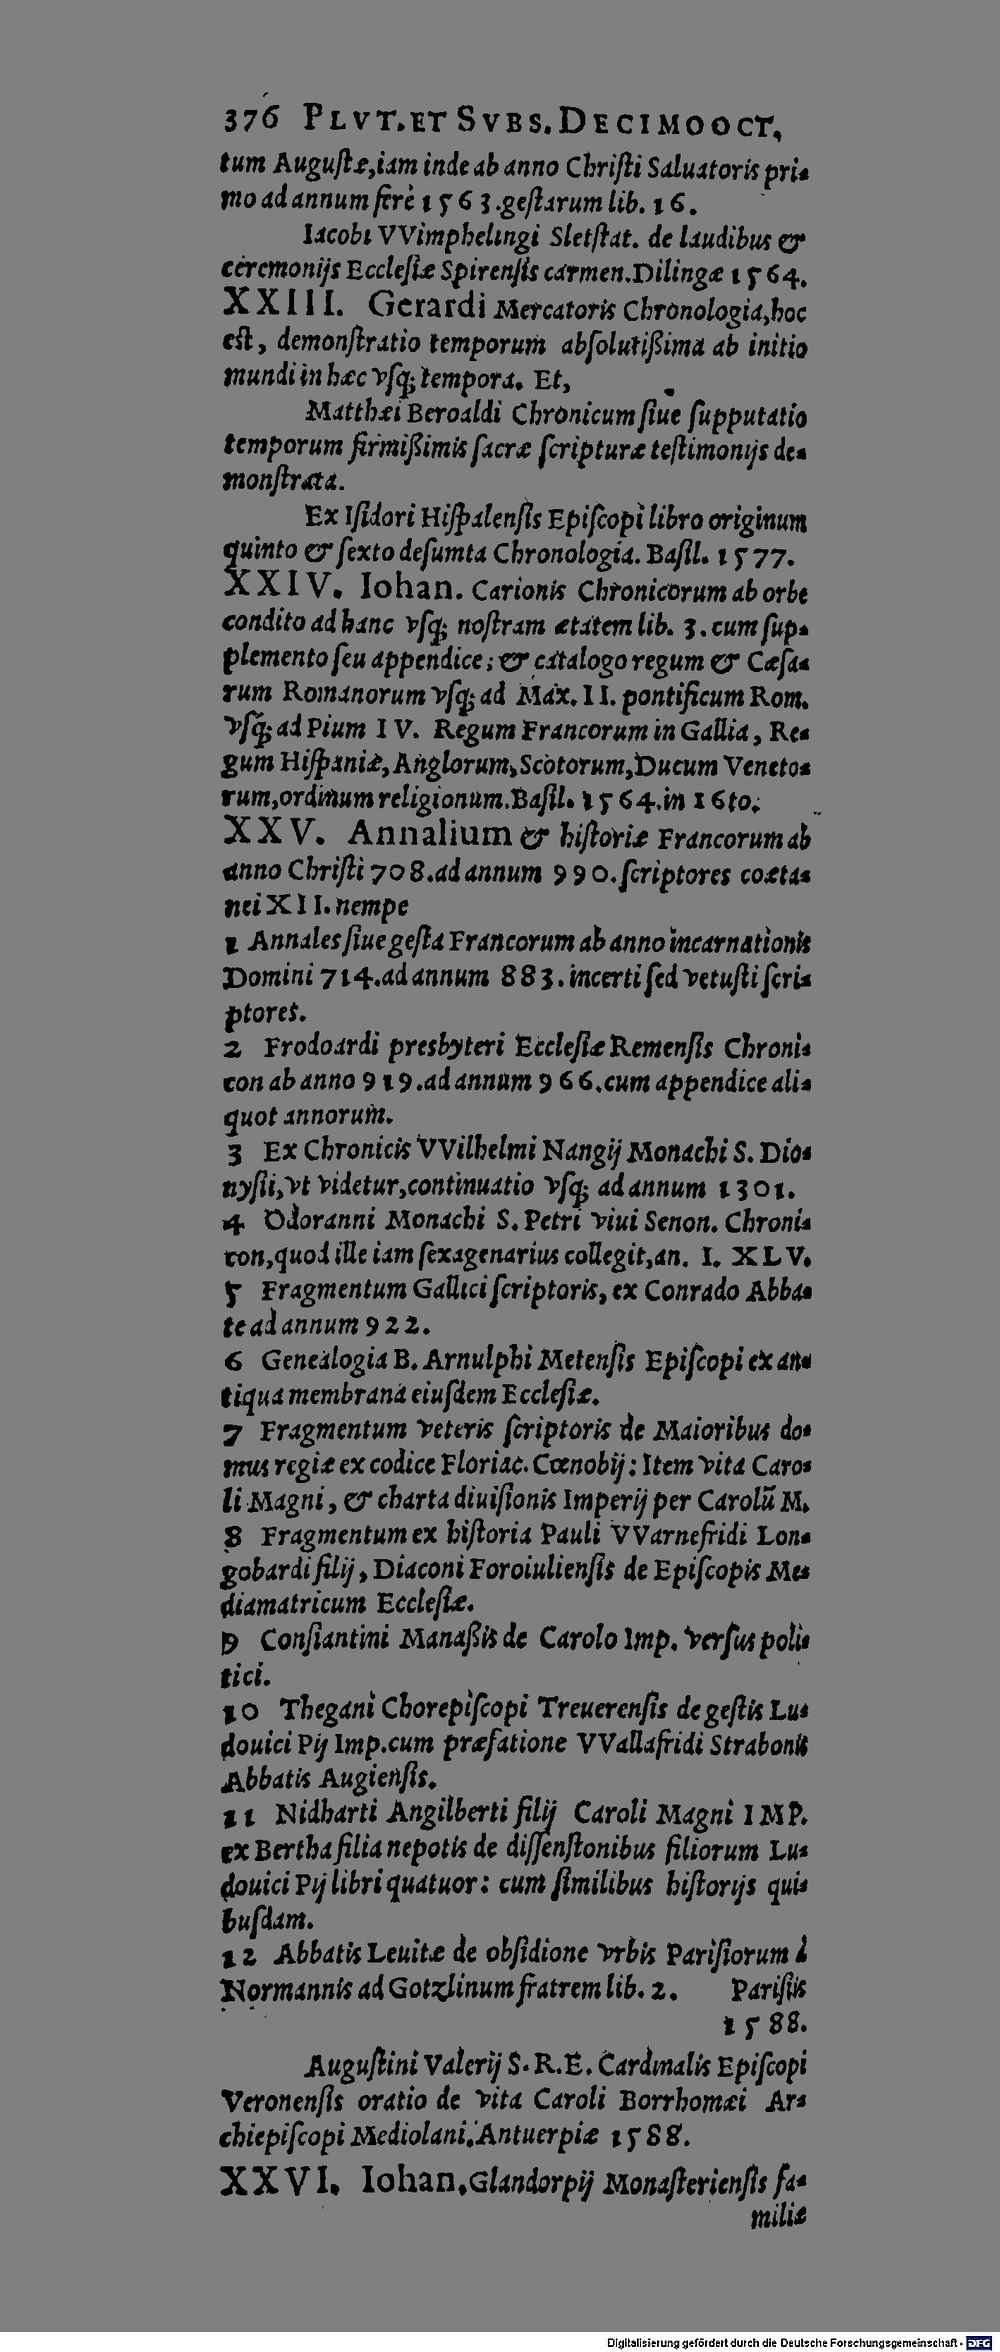 376 PLVT. ET SVBS. DECIMOOCT,
tum Auguſtæ, iam inde ab anno Chriſti Saluatoris pri-
mo ad annum ferè 1563. geſtarum lib. 16.
Iacobi VVimphelingi Sletſtat. de laudibus &
ceremonijs Eccleſiæ Spirenſis carmen. Dilingæ 1564.
XXIII. Gerardi Mercatoris Chronologia, hoc
est, demonſtratio temporum abſolutißima ab initio
mundi in hæc vſq; tempora. Et,
Matthæi Beroaldi Chronicum ſiue ſupputatio
temporum firmißimis ſacræ ſcripturæ teſtimonijs de-
monſtrata.
Ex Iſidori Hiſpalenſis Epiſcopi libro originum
quinto & ſexto deſumta Chronologia. Baſil. 1577.
XXIV. Iohan. Carionis Chronicorum ab orbe
condito ad hanc vſq; noſtram ætatem lib. 3. cum ſup-
plemento ſeu appendice; & catalogo regum & Cæſa-
rum Romanorum vſq; ad Max. II. pontificum Rom.
vſq; ad Pium IV. Regum Francorum in Gallia, Re-
gum Hiſpaniæ, Anglorum, Scotorum, Ducum Veneto-
rum, ordinum religionum. Baſil. 1564. in 16to.
XXV. Annalium & hiſtoriæ Francorum ab
anno Chriſti 708. ad annum 990. ſcriptores coæta-
nei XII. nempe
1 Annales ſiue geſta Francorum ab anno incarnationis
Domini 714. ad annum 883. incerti ſed vetuſti ſcri-
ptores.
2 Frodoardi presbyteri Eccleſiæ Remenſis Chroni-
con ab anno 919. ad annum 966. cum appendice ali-
quot annorum.
3 Ex Chronicis VVilhelmi Nangij Monachi S. Dio-
nyſii, vt videtur, continuatio vſq; ad annum 1301.
4 Odoranni Monachi S. Petri viui Senon. Chroni-
con, quod ille iam ſexagenarius collegit, an. I. XLV.
5 Fragmentum Gallici ſcriptoris, ex Conrado Abba-
te ad annum 922.
6 Genealogia B. Arnulphi Metenſis Epiſcopi ex an-
tiqua membrana eiuſdem Eccleſiæ.
7 Fragmentum veteris ſcriptoris de Maioribus do-
mus regiæ ex codice Floriac. Cœnobij: Item vita Caro-
li Magni, & charta diuiſionis Imperij per Carolũ M.
8 Fragmentum ex hiſtoria Pauli VVarnefridi Lon-
gobardi filij, Diaconi Foroiulienſis de Epiſcopis Me-
diamatricum Eccleſiæ.
9 Conſtantini Manaßis de Carolo Imp. verſus poli-
tici.
10 Thegani Chorepiſcopi Treuerenſis de geſtis Lu-
douici Pij Imp. cum præfatione VVallafridi Strabonis
Abbatis Augienſis.
11 Nidharti Angilberti filij Caroli Magni IMP.
ex Bertha filia nepotis de diſſenſionibus filiorum Lu-
douici Pij libri quatuor: cum ſimilibus hiſtorijs qui-
buſdam.
12 Abbatis Leuitæ de obſidione vrbis Pariſiorum à
Normannis ad Gotzlinum fratrem lib. 2. Pariſiis
1588.
Auguſtini Valerij S. R. E. Cardinalis Epiſcopi
Veronenſis oratio de vita Caroli Borrhomæi Ar-
chiepiſcopi Mediolani. Antuerpiæ 1588.
XXVI. Iohan. Glandorpij Monaſterienſis fa-
miliæ
Digitalisierung gefördert durch die Deutsche Forschungsgemeinschaft - DFG